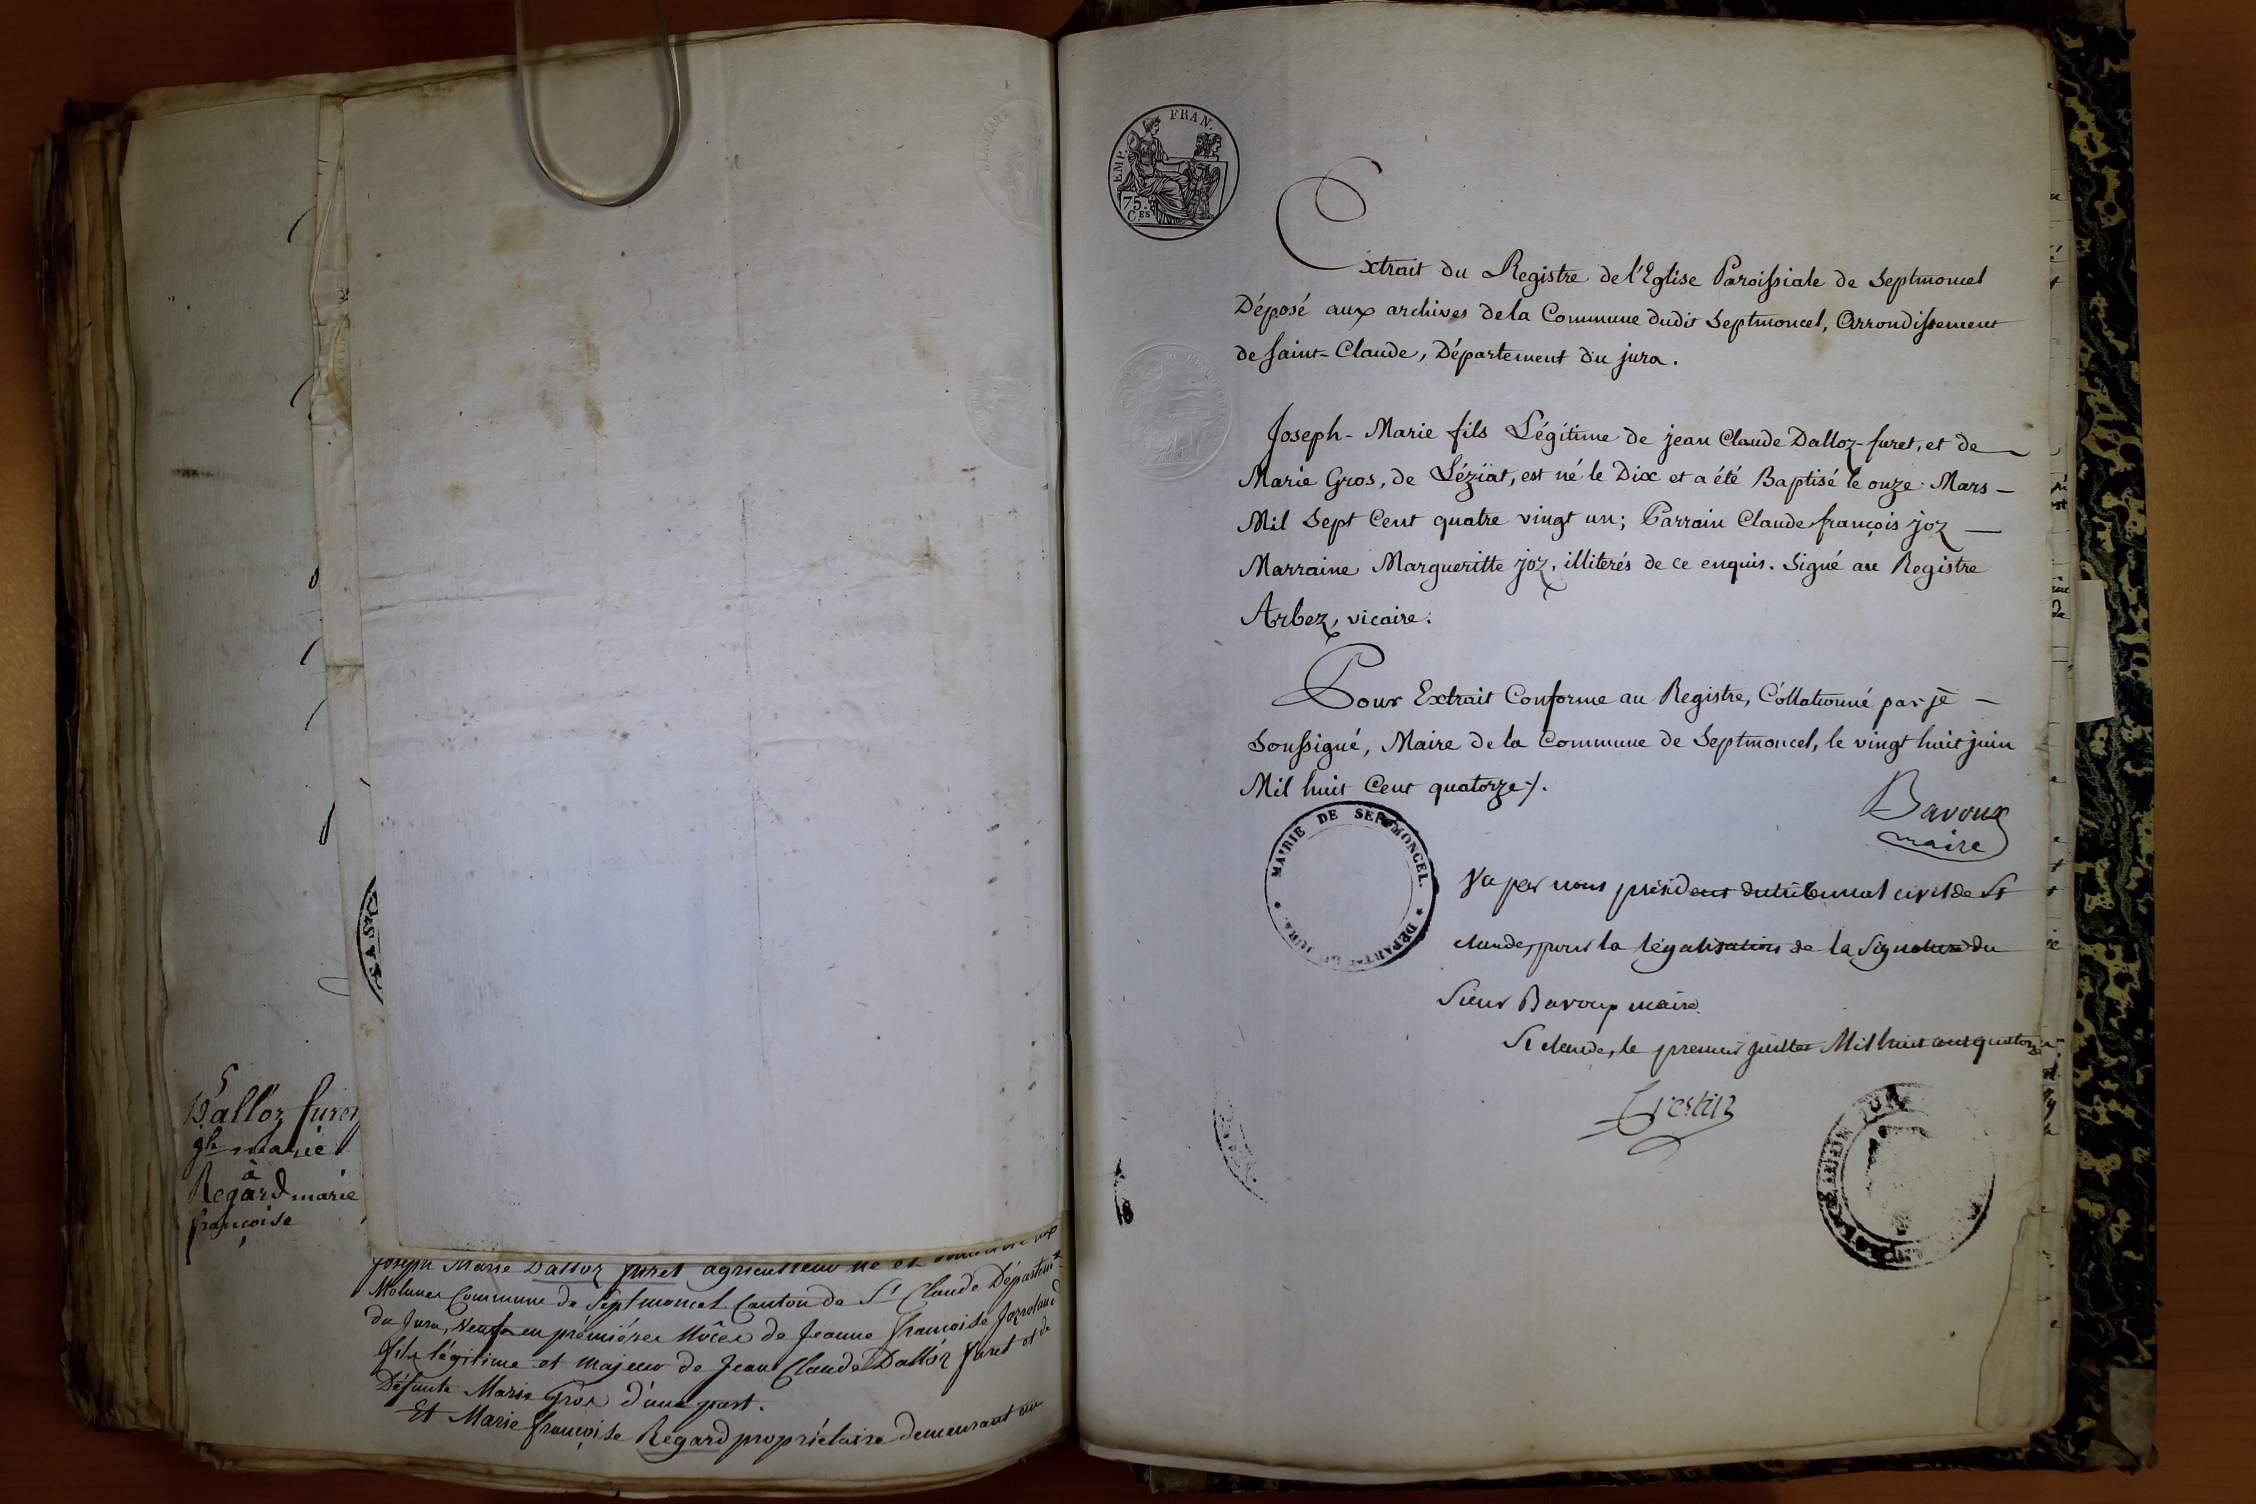 Dalloz furet
jh marie
à
Regard marie
françoise
Joseph Marie Dalloz furet agriculteur né et
Molunes Commune de Septmoncel Canton de St Claude Départemt
du Jura, Veuf en prémiéres Nôces de Jeanne françoise Jozroland
fils légitime et majeur de Jean Claude Dalloz furet et de
Défunte Marie Gros d'une part.
Et Marie françoise Regard propriétaire demeurant au
EMP. FRAN.
75.
C.ES
Extrait du Registre de l'Eglise Paroissiale de Septmoncel
Déposé aux archives de la Commune dudit Septmoncel, Arrondissement
de saint-Claude, Département du jura.
Joseph-Marie fils Légitime de jean Claude Dalloz-furet, et de
Marie Gros, de Léziat, est né le Dix et a été Baptisé le onze Mars —
Mil Sept Cent quatre vingt un; Parrain Claude françois joz —
Marraine Margueritte joz, illiterés de ce enquis. Signé au Registre
Arbez, vicaire.
Pour Extrait Conforme au Registre, Collationné par jè —
Soussigné, Maire de la Commune de Septmoncel, le vingt huit juin
Mil huit Cent quatorze ./.
Bavoux
maire
MAIRIE DE SEPTMONCEL. * DEPART. DU JURA. *
Vu par nous président du tribunal civil de St
claude, pour la légalisation de la Signature du
Sieur Bavoux maire
St claude, le premier juillet Mil huit cent quatorze
Crestin